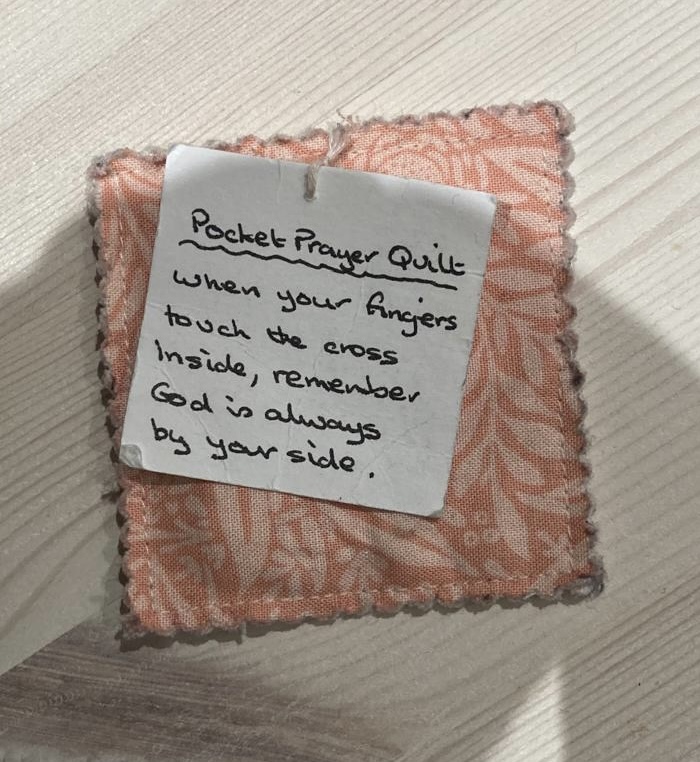 Pocket Prayer Quilt
when your fingers
touch the cross
Inside, remember
God is always
by your side.